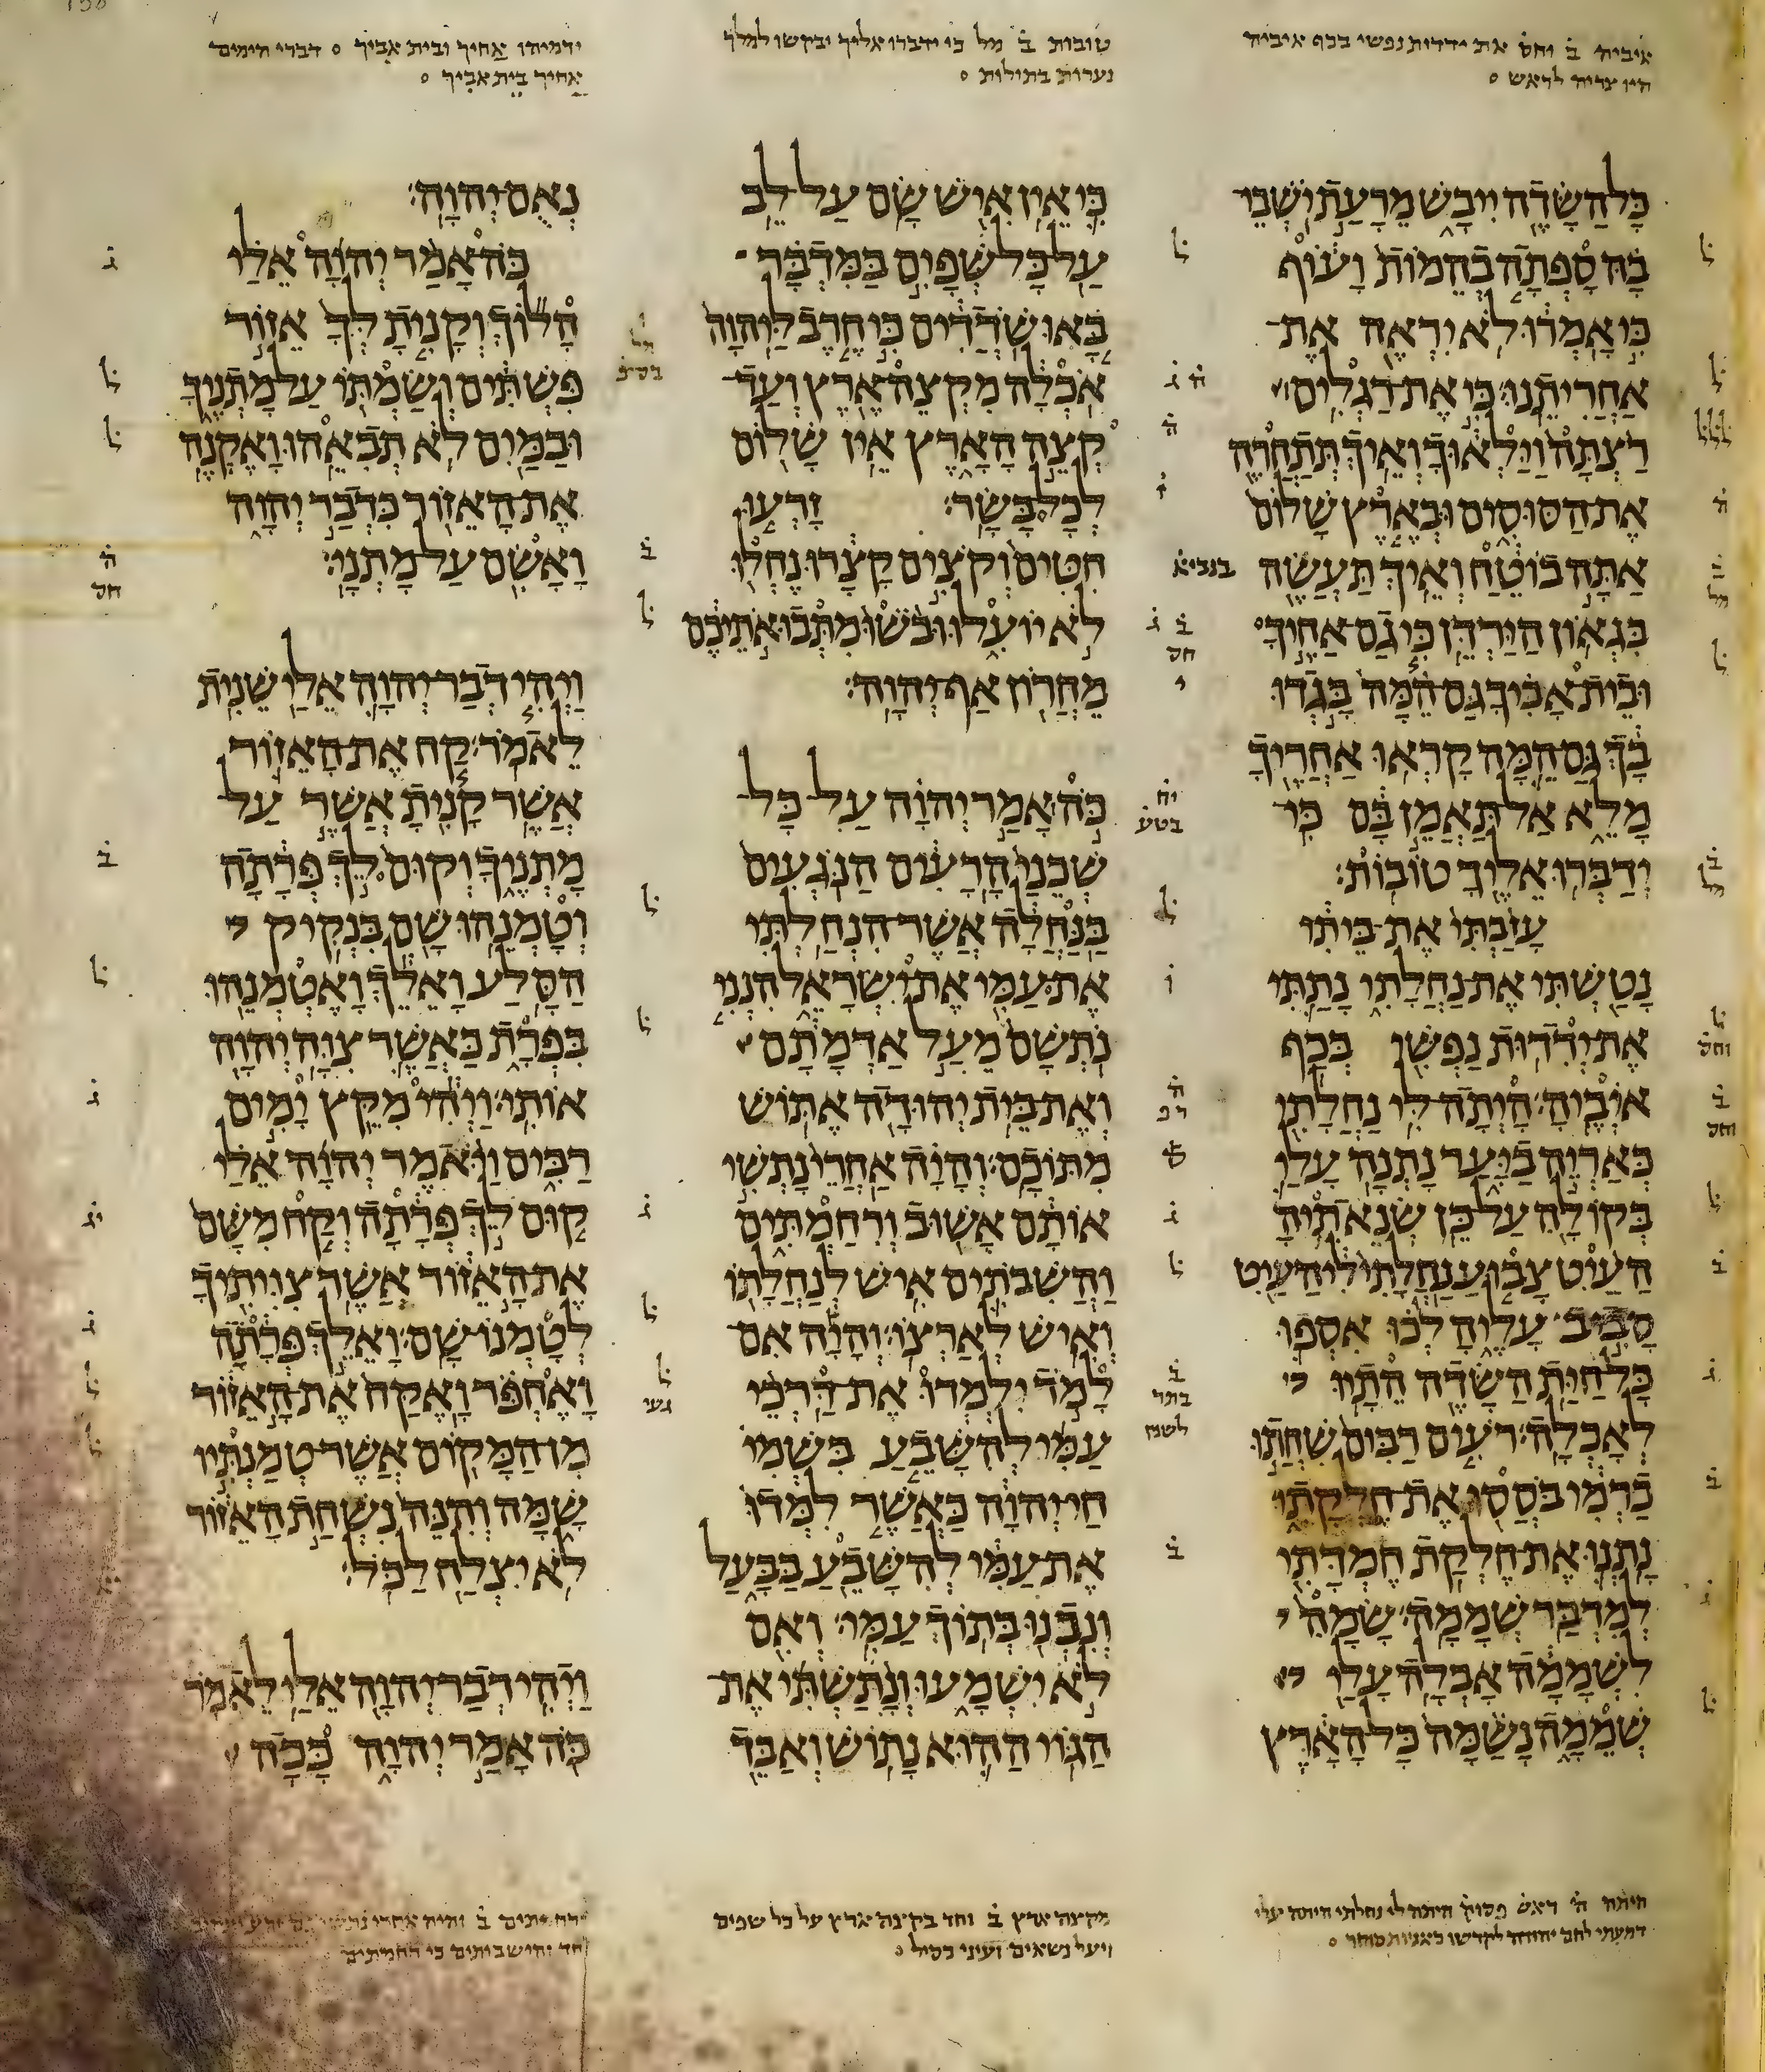 אויביה ב̇ וחס̇ את ידדות נפשי בכף אויביה
היו צריה לראש
טובות ב̇ מל כי ידברו אליך ויבקשו למלך
נערות בתולות
ירמיהו אחיך ובית אביך דברי הימים
אחיך בית אביך
כָּל הַשָּׂדֶה יִיבָשׁ מֵרָעַת יֹשְׁבֵי
בָהּ סָפְתָה בְהֵמוֹת וָעוֹף
כִּי אָמְרוּ לֹא יִרְאֶה אֶת־
אַחֲרִיתֵנוּ׃ כִּי אֶת־רַגְלִים
רַצְתָּה וַיַּלְאוּךָ וְאֵיךְ תְּתַחֲרֶה
אֶת הַסּוּסִים וּבְאֶרֶץ שָׁלוֹם
אַתָּה בוֹטֵחַ וְאֵיךְ תַּעֲשֶׂה
בִּגְאוֹן הַיַּרְדֵּן׃ כִּי גַם אַחֶיךָ
וּבֵית אָבִיךָ גַּם הֵמָּה בָּגְדוּ
בָךְ גַּם הֵמָּה קָרְאוּ אַחֲרֶיךָ
מָלֵא אַל תַּאֲמֵן בָּם כִּי־
יְדַבְּרוּ אֵלֶיךָ טוֹבוֹת׃
עָזַבְתִּי אֶת־בֵּיתִי
נָטַשְׁתִּי אֶת נַחֲלָתִי נָתַתִּי
אֶת יְדִדוּת נַפְשִׁי בְּכַף
אוֹיְבֶיהָ׃ הָיְתָה־לִּי נַחֲלָתִי
כְּאַרְיֵה בַיָּעַר נָתְנָה עָלַי
בְּקוֹלָהּ עַל כֵּן שְׂנֵאתִיהָ׃
הַעַיִט צָבוּעַ נַחֲלָתִי לִי הַעַיִט
סָבִיב עָלֶיהָ לְכוּ אִסְפוּ
כָּל חַיַּת הַשָּׂדֶה הֵתָיוּ
לְאָכְלָה׃ רֹעִים רַבִּים שִׁחֲתוּ
כַרְמִי בֹּסְסוּ אֶת חֶלְקָתִי
נָתְנוּ אֶת חֶלְקַת חֶמְדָּתִי
לְמִדְבַּר שְׁמָמָה׃ שָׂמָהּ
לִשְׁמָמָה אָבְלָה עָלַי
שְׁמֵמָה נָשַׁמָּה כָּל הָאָרֶץ
כִּי אֵין אִישׁ שָׂם עַל לֵב׃
עַל כָּל שְׁפָיִם בַּמִּדְבָּר
בָּאוּ שֹׁדְדִים כִּי חֶרֶב לַיהוָה
אֹכְלָה מִקְצֵה אֶרֶץ וְעַד־
קְצֵה הָאָרֶץ אֵין שָׁלוֹם
לְכָל בָּשָׂר׃ זָרְעוּ
חִטִּים וְקֹצִים קָצָרוּ נֶחְלוּ
לֹא יוֹעִלוּ וּבֹשׁוּ מִתְּבוּאֹתֵיכֶם
מֵחֲרוֹן אַף יְהוָה׃
כֹּה אָמַר יְהוָה עַל־כָּל־
שְׁכֵנַי הָרָעִים הַנֹּגְעִים
בַּנַּחֲלָה אֲשֶׁר־הִנְחַלְתִּי
אֶת־עַמִּי אֶת יִשְׂרָאֵל הִנְנִי
נֹתְשָׁם מֵעַל אַדְמָתָם
וְאֶת בֵּית יְהוּדָה אֶתּוֹשׁ
מִתּוֹכָם׃ וְהָיָה אַחֲרֵי נָתְשִׁי
אוֹתָם אָשׁוּב וְרִחַמְתִּים
וַהֲשִׁבֹתִים אִישׁ לְנַחֲלָתוֹ
וְאִישׁ לְאַרְצוֹ׃ וְהָיָה אִם־
לָמֹד יִלְמְדוּ אֶת־דַּרְכֵי
עַמִּי לְהִשָּׁבֵעַ בִּשְׁמִי
חַי יְהוָה כַּאֲשֶׁר לִמְּדוּ
אֶת־עַמִּי לְהִשָּׁבֵעַ בַּבָּעַל
וְנִבְנוּ בְּתוֹךְ עַמִּי׃ וְאִם
לֹא יִשְׁמָעוּ וְנָתַשְׁתִּי אֶת־
הַגּוֹי הַהוּא נָתוֹשׁ וְאַבֵּד
נְאֻם יְהוָה׃
כֹּה אָמַר יְהוָה אֵלַי
הָלוֹךְ וְקָנִיתָ לְּךָ אֵזוֹר
פִּשְׁתִּים וְשַׂמְתּוֹ עַל מָתְנֶיךָ
וּבַמַּיִם לֹא תְבִאֵהוּ׃ וָאֶקְנֶה
אֶת הָאֵזוֹר כִּדְבַר יְהוָה
וָאָשִׂם עַל־מָתְנָי׃
וַיְהִי דְבַר יְהוָה אֵלַי שֵׁנִית
לֵאמֹר׃ קַח אֶת־הָאֵזוֹר
אֲשֶׁר קָנִיתָ אֲשֶׁר עַל־
מָתְנֶיךָ וְקוּם לֵךְ פְּרָתָה
וְטָמְנֵהוּ שָׁם בִּנְקִיק
הַסָּלַע׃ וָאֵלֵךְ וָאֶטְמְנֵהוּ
בִּפְרָת כַּאֲשֶׁר צִוָּה יְהוָה
אוֹתִי׃ וַיְהִי מִקֵּץ יָמִים
רַבִּים וַיֹּאמֶר יְהוָה אֵלַי
קוּם לֵךְ פְּרָתָה וְקַח מִשָּׁם
אֶת הָאֵזוֹר אֲשֶׁר צִוִּיתִיךָ
לְטָמְנוֹ שָׁם׃ וָאֵלֵךְ פְּרָתָה
וָאֶחְפֹּר וָאֶקַּח אֶת־הָאֵזוֹר
מִן הַמָּקוֹם אֲשֶׁר־טְמַנְתִּיו
שָׁמָּה וְהִנֵּה נִשְׁחַת הָאֵזוֹר
לֹא יִצְלַח לַכֹּל׃
וַיְהִי דְבַר יְהוָה אֵלַי לֵאמֹר׃
כֹּה אָמַר יְהוָה כָּכָה
היתה ה̇ ראש פסוק היתה לי נחלתי היתה עלי
דמעתי לחם יהודה לקדשו כאניות סוחר
מקצה ארץ ב̇ וחד בקצה ארץ על כל שפים
ויעל נשאים ועיני כסיל